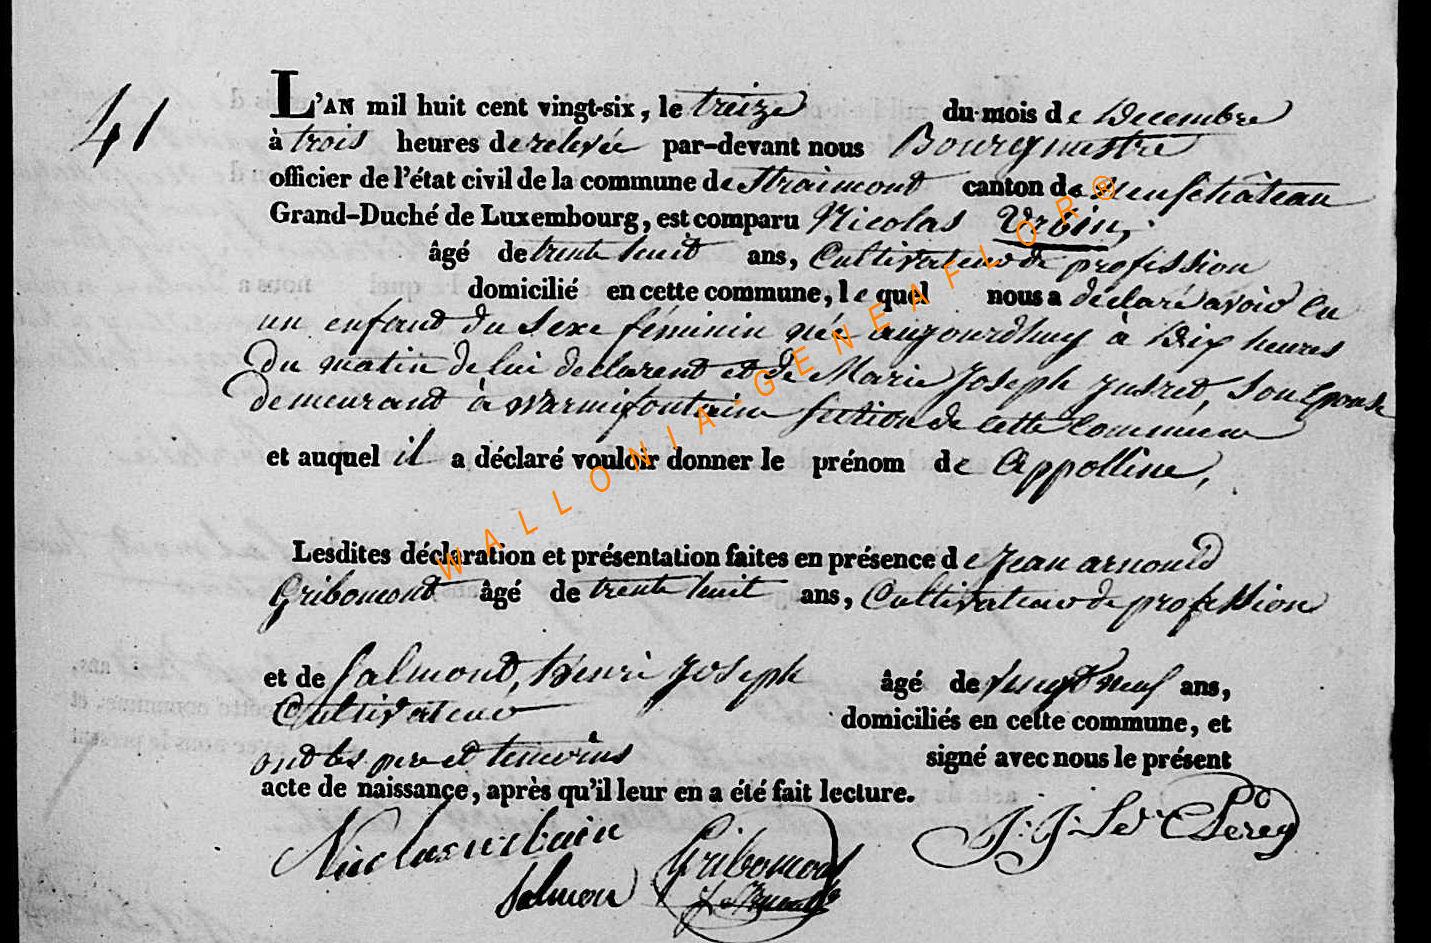 41
L'AN mil huit cent vingt-six, le treize du mois de Décembre
à trois heures de relevée par-devant nous Bourgmestre
officier de l'état civil de la commune de Straimont canton de Neufchâteau
Grand-Duché de Luxembourg, est comparu Nicolas Urbin,
âgé de trente huit ans, Cultivateur de profession
domicilié en cette commune, le quel nous a déclaré avoir eu
un enfant du sexe féminin né aujourdhuy à Dix heures
Du matin de lui declarent et de Marie Joseph, son Epouse
Demeurant à Warmifontaine section de cette Commune
et auquel il a déclaré vouloir donner le prénom de Appolline,
Lesdites déclaration et présentation faites en présence de Jean arnould
Gribomont âgé de trente huit ans, Cultivateur de profession
et de Salmont, henri Joseph âgé de vingt neuf ans,
Cultivateur domiciliés en cette commune, et
ont les pere et temoins signé avec nous le présent
acte de naissance, après qu'il leur en a été fait lecture.
Nicolas urbain Gribomont J. J. Le Clerey
Salmon
WALLONIA-GENEAFLOR®